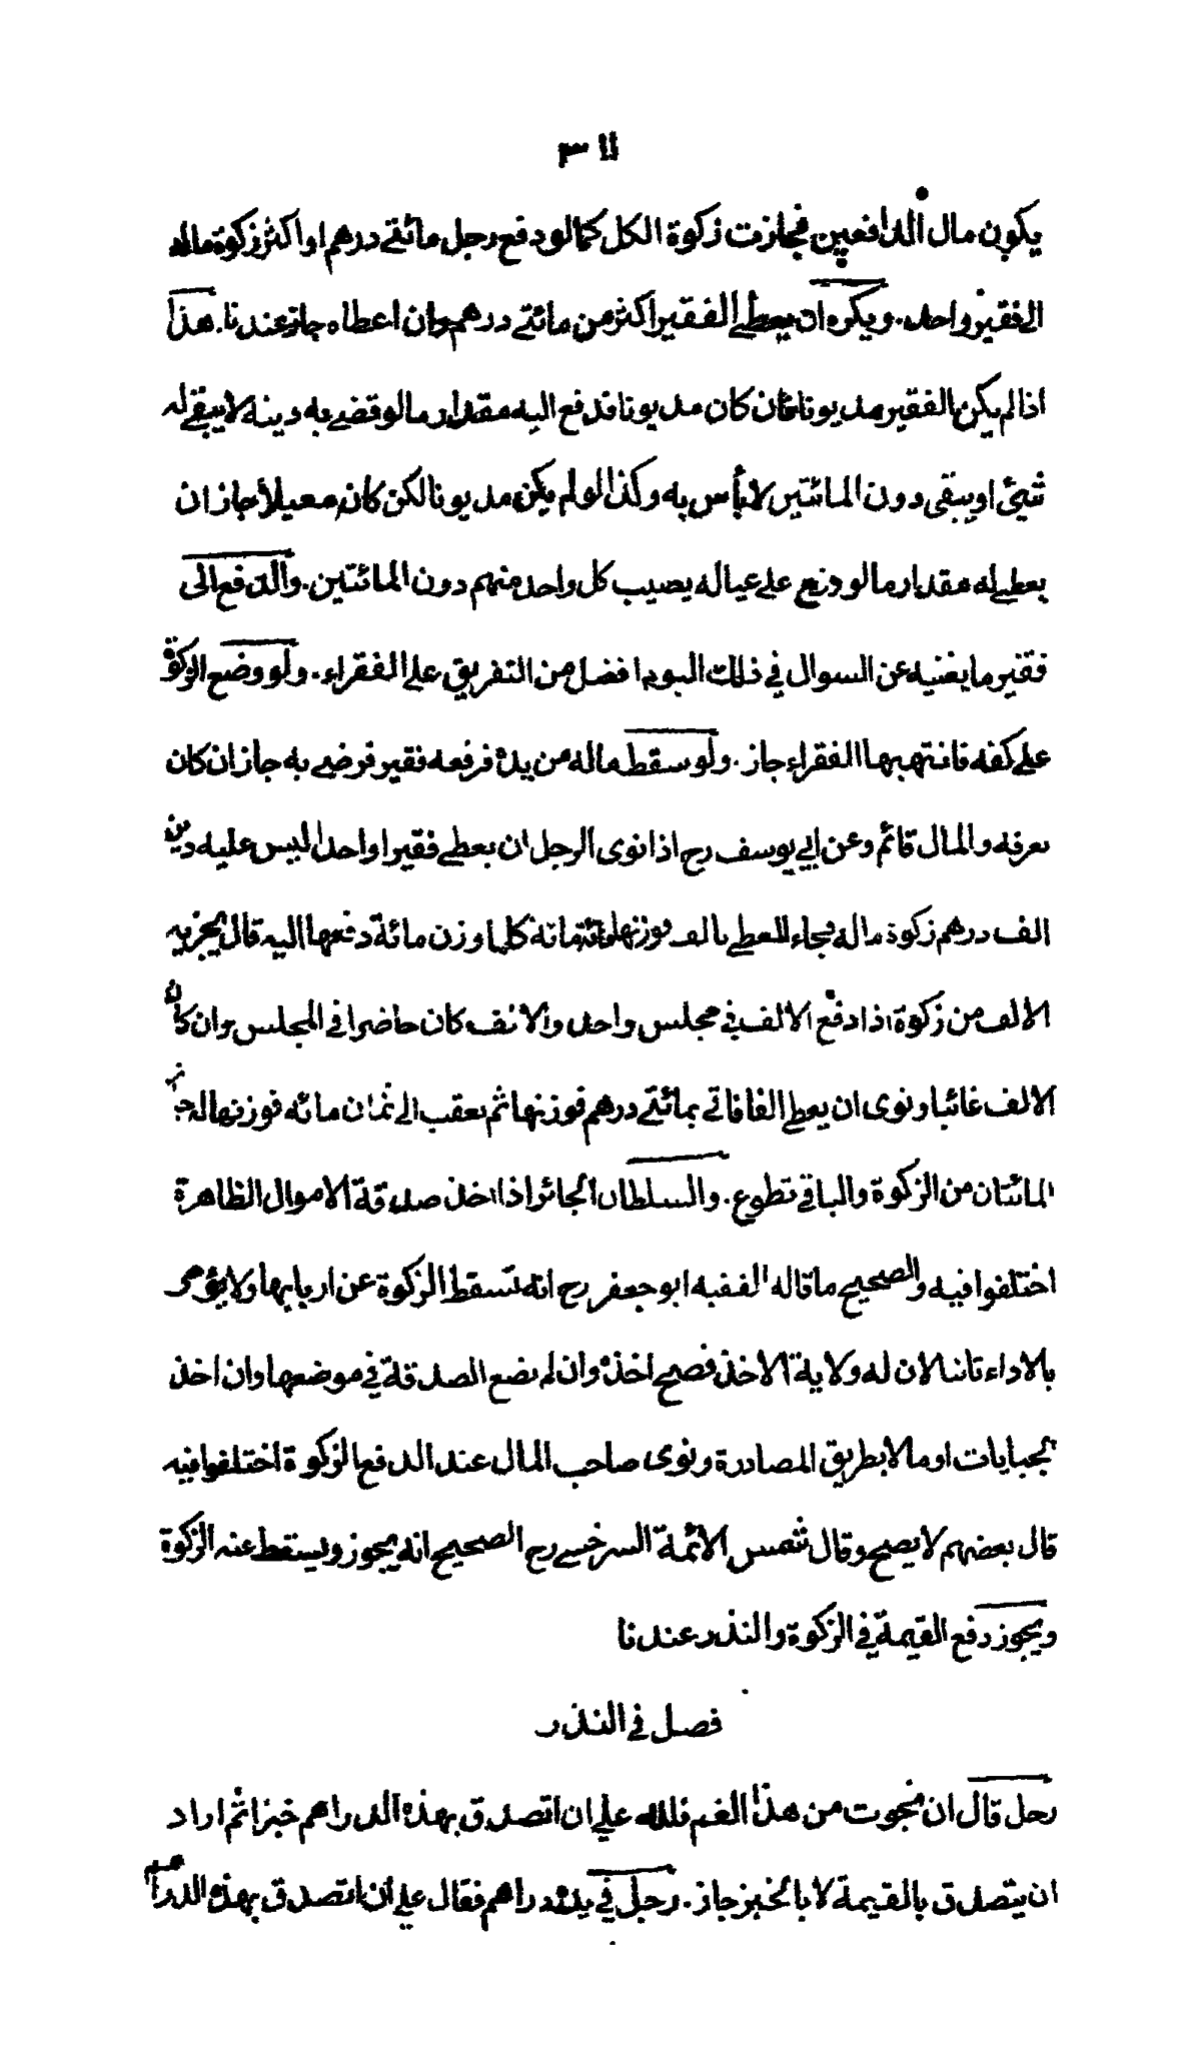 ٣١١
يكون مال الدافعين فجازت زكوة الكل كما لو دفع رجل مائتي درهم او اكثر زكوة ماله
الى فقير واحد. ويكره ان يعطى الفقير اكثر من مائتي درهم وان اعطاه جاز عندنا. هذا
اذا لم يكن الفقير مديونا فان كان مديونا فدفع اليه مقدار ما لو قضى به دينه لا يبقى له
شيئ او يبقى دون المائتين لا بأس به وكذا لو لم يكن مديونا لكن كان معيلا جاز ان
يعطى له مقدار ما لو وزع على عياله يصيب كل واحد منهم دون المائتين. والدفع الى
فقير ما يغنيه عن السوال في ذلك اليوم افضل من التفريق على الفقراء. ولو وضع الزكوة
على كفه فانتهبها الفقراء جاز. ولو سقط ماله من يده فرفعه فقير فرضى به جاز ان كان
يعرفه والمال قائم وعن ابي يوسف رح اذا نوى الرجل ان يعطى فقيرا واحدا ليس عليه دين
الف درهم زكوة ماله فجاء المعطى بالف فوزنها مائة مائة كلما وزن مائة دفعها اليه قال يجزيه
الالف من زكوة اذا دفع الالف في مجلس واحد والالف كان حاضرا في المجلس وان كان
الالف غائبا ونوى ان يعطى الفا فاتى بمائتي درهم فوزنها ثم يعقب الى ثمان مائه فوزنها له جاز
المائتان من الزكوة والباقي تطوع. والسلطان الجائر اذا اخذ صدقة الاموال الظاهرة
اختلفوا فيه والصحيح ما قاله الفقيه ابو جعفر رح انه تسقط الزكوة عن اربابها ولا يؤمر
بالاداء ثانيا لان له ولاية الاخذ فصح اخذه وان لم يضع الصدقة في موضعها وان اخذ
الجبايات او مالا بطريق المصادرة ونوى صاحب المال عند الدفع الزكوة اختلفوا فيه
قال بعضهم لا يصح وقال شمس الائمة السرخسى رح الصحيح انه يجوز ويسقط عنه الزكوة
ويجوز دفع القيمة في الزكوة والنذر عندنا
فصل في النذر
رجل قال ان نجوت من هذا الغم فلله على ان اتصدق بهذه الدراهم خبزا ثم اراد
ان يتصدق بالقيمة لا بالخبز جاز. رجل في يده دراهم فقال على ان اتصدق بهذه الدراهم